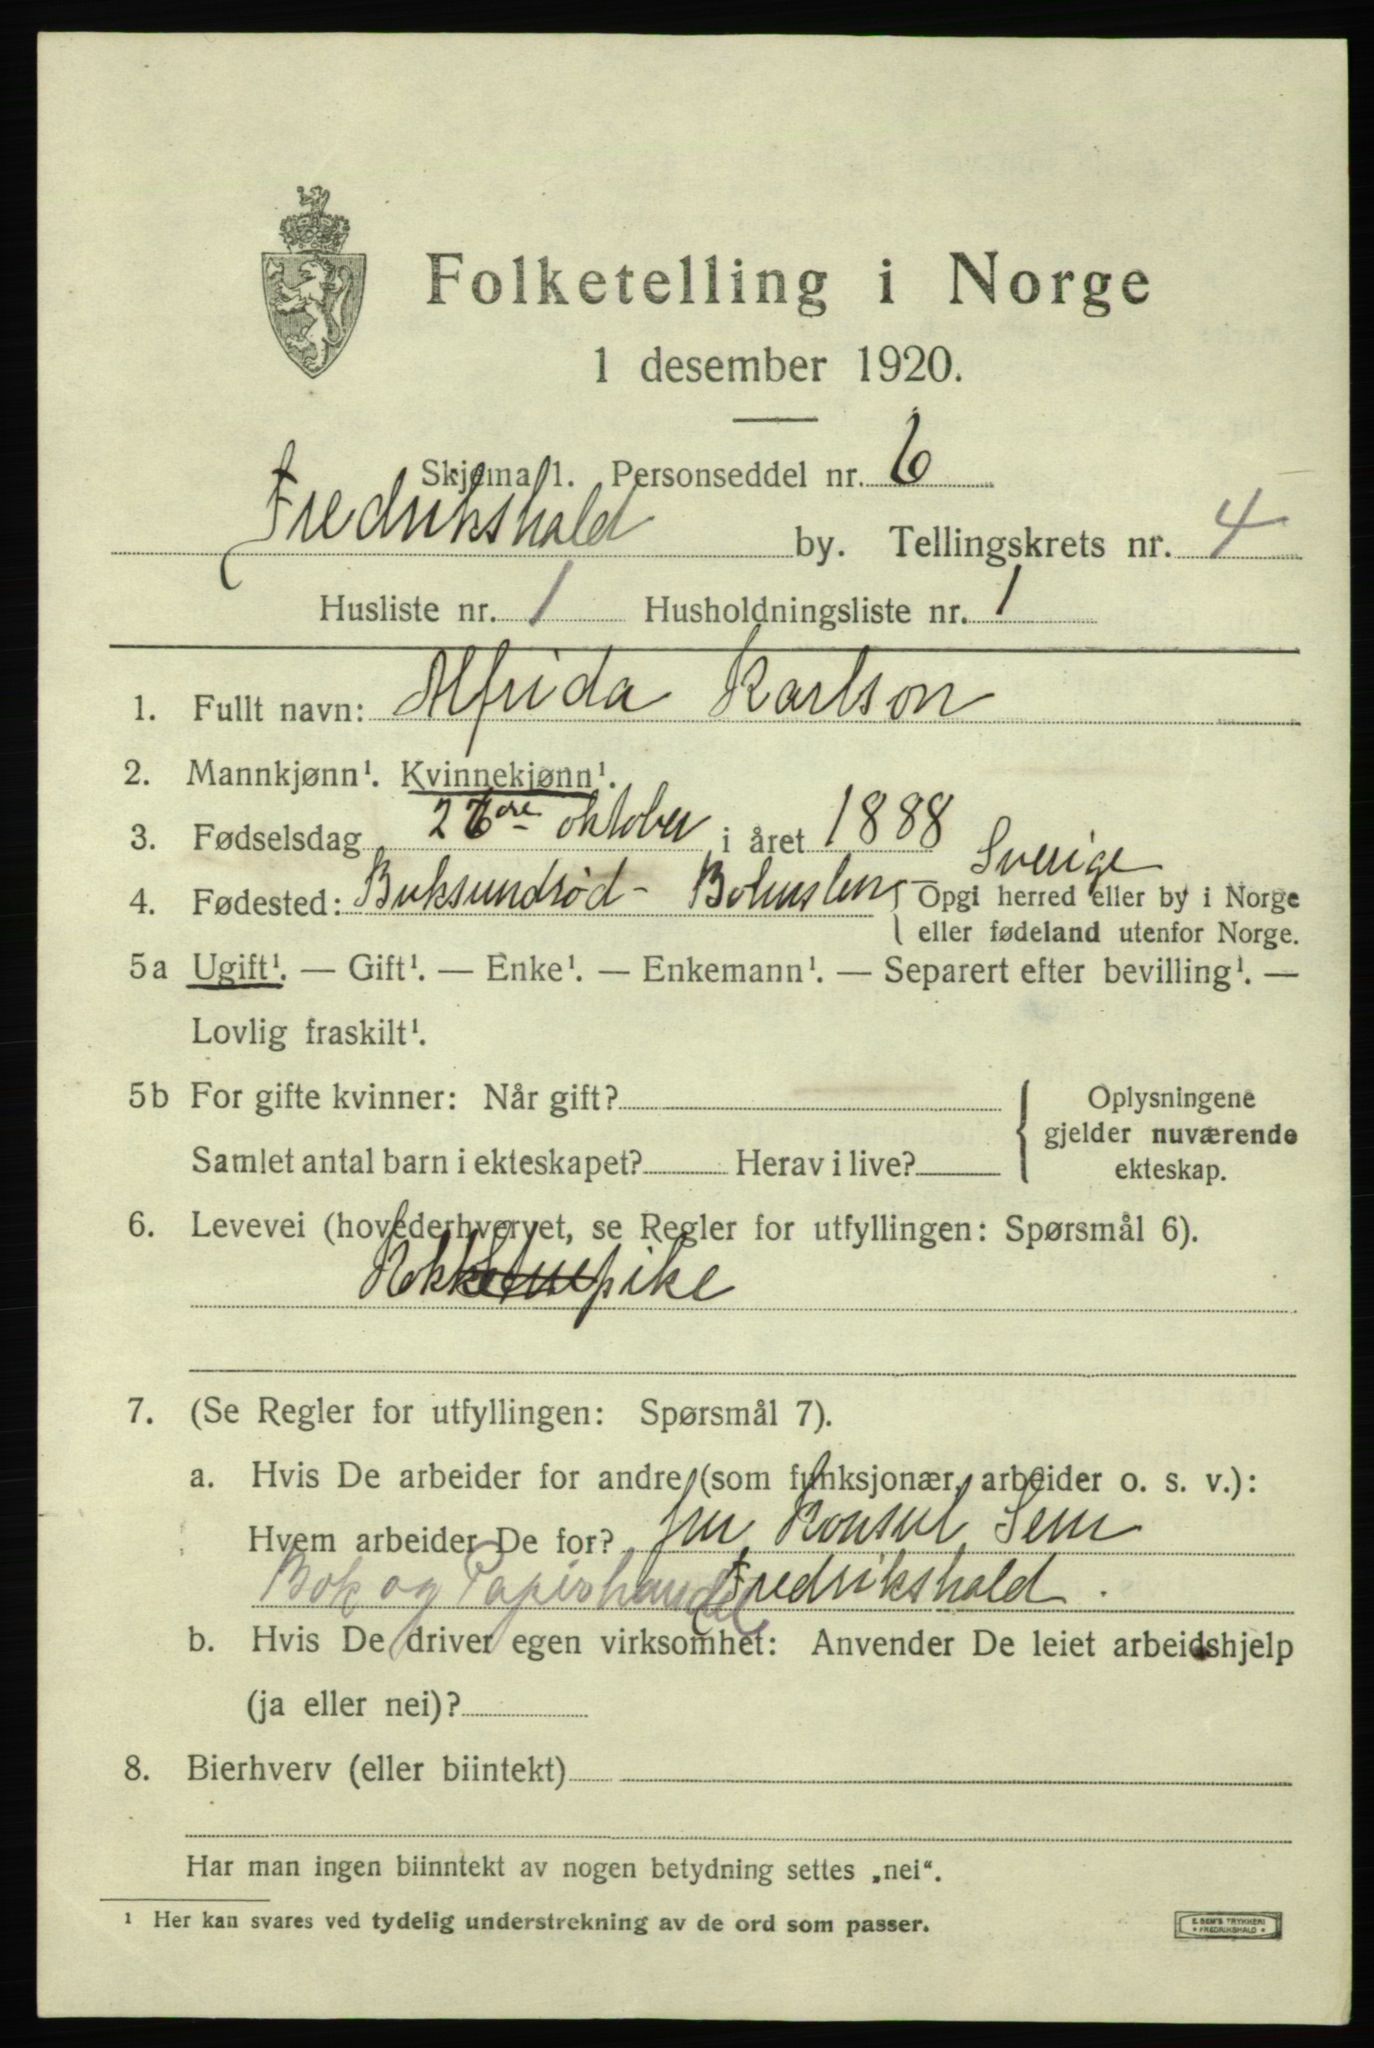 Folketelling i Norge
1 desember 1920.
Skjema 1. Personseddel nr. 6
Fredrikshald by. Tellingskrets nr. 4
Husliste nr. 1 Husholdningsliste nr. 1
1. Fullt navn: Alfrida Karlson
2. Mannkjønn¹. Kvinnekjønn¹.
3. Fødselsdag oktober i året 1888
Sverige
4. Fødested: Buksundrød - Bohuslen - { Opgi herred eller by i Norge
eller fødeland utenfor Norge.
5a Ugift¹. — Gift¹. — Enke¹. — Enkemann¹. — Separert efter bevilling¹. —
Lovlig fraskilt¹.
5b For gifte kvinner: Når gift? { Oplysningene
gjelder nuværende
Samlet antal barn i ekteskapet? Herav i live? ekteskap.
6. Levevei (hovederhvervet, se Regler for utfyllingen: Spørsmål 6).
pike
7. (Se Regler for utfyllingen: Spørsmål 7).
a. Hvis De arbeider for andre (som funksjonær, arbeider o. s. v.):
Hvem arbeider De for? fru Konsul Sem
Bok og Papirhandel Fredrikshald.
b. Hvis De driver egen virksomhet: Anvender De leiet arbeidshjelp
(ja eller nei)?
8. Bierhverv (eller biintekt)
Har man ingen biinntekt av nogen betydning settes „nei“.
¹ Her kan svares ved tydelig understrekning av de ord som passer.
E. SEM'S TRYKKERI
* FREDRIKSHALD *